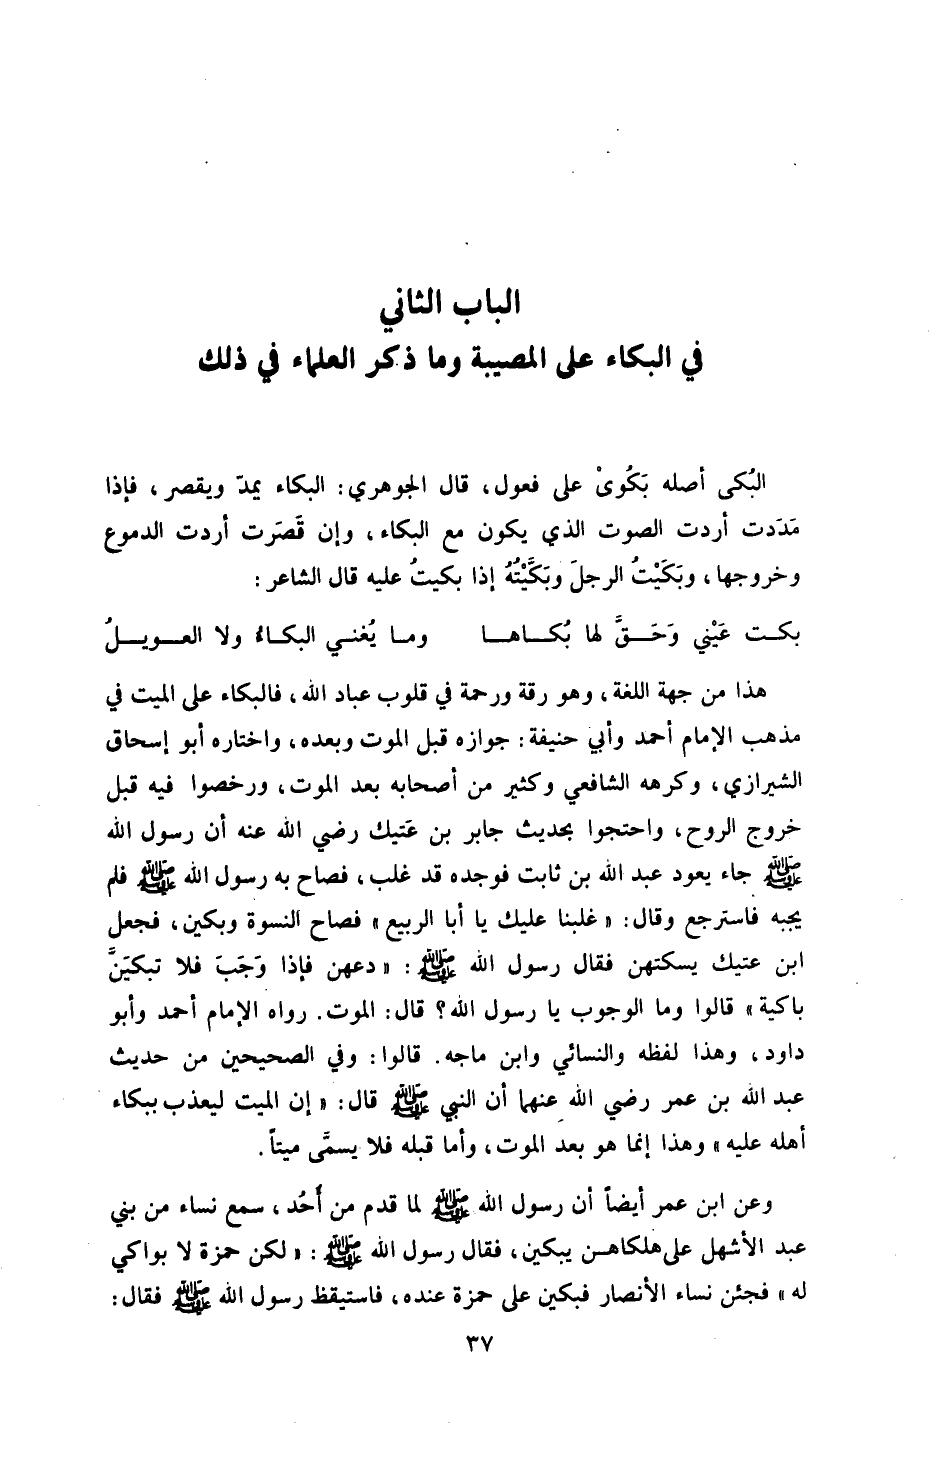 الباب الثاني
في البكاء على المصيبة وما ذكر العلماء في ذلك
البُكى أصله بَكُوىْ على فعول، قال الجوهري: البكاء يمدّ ويقصر، فإذا
مَدَدت أردت الصوت الذي يكون مع البكاء، وإن قَصَرت أردت الدموع
وخروجها، وبَكَيْتُ الرجلَ وبَكَّيْتُهُ إذا بكيتُ عليه قال الشاعر:
بكـت عَيْني وَحَـقَّ لها بُكـاهـا وما يُغنـي البكـاءُ ولا العـويـلُ
هذا من جهة اللغة، وهو رقة ورحمة في قلوب عباد الله، فالبكاء على الميت في
مذهب الإمام أحمد وأبي حنيفة: جوازه قبل الموت وبعده، واختاره أبو إسحاق
الشيرازي، وكرهه الشافعي وكثير من أصحابه بعد الموت، ورخصوا فيه قبل
خروج الروح، واحتجوا بحديث جابر بن عَتيك رضي الله عنه أن رسول الله
ﷺ جاء يعود عبد الله بن ثابت فوجده قد غلب، فصاح به رسول الله ﷺ فلم
يجبه فاسترجع وقال: « غلبنا عليك يا أبا الربيع » فصاح النسوة وبكين، فجعل
ابن عتيك يسكتهن فقال رسول الله ﷺ: « دعهن فإذا وَجَبَ فلا تبكيَنَّ
باكية » قالوا وما الوجوب يا رسول الله؟ قال: الموت. رواه الإمام أحمد وأبو
داود، وهذا لفظه والنسائي وابن ماجه. قالوا: وفي الصحيحين من حديث
عبد الله بن عمر رضي الله عنهما أن النبي ﷺ قال: « إن الميت ليعذب ببكاء
أهله عليه » وهذا إنما هو بعد الموت، وأما قبله فلا يسمَّى ميتاً.
وعن ابن عمر أيضاً أن رسول الله ﷺ لما قدم من أُحُد، سمع نساء من بني
عبد الأشهل على هلكاهـن يبكين، فقال رسول الله ﷺ: « لكن حمزة لا بواكي
له » فجئن نساء الأنصار فبكين على حمزة عنده، فاستيقظ رسول الله ﷺ فقال:
٣٧